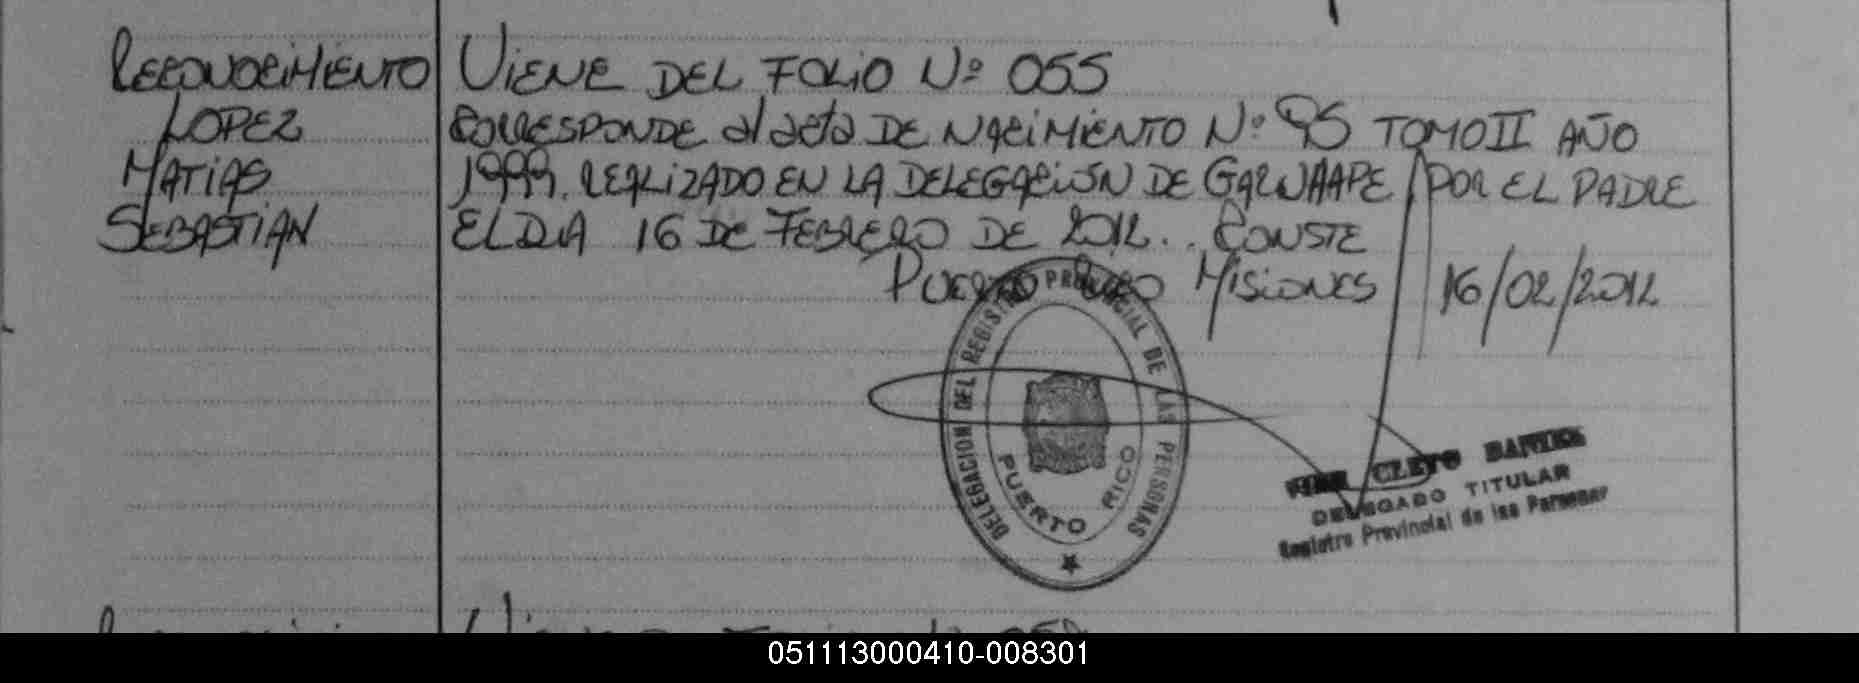 RECONOCIMIENTO
LOPEZ
MATIAS
SEBASTIAN
VIENE DEL FOLIO Nº 055
CORRESPONDE al acta DE NACIMIENTO Nº 95 TOMO II AÑO
1999. REALIZADO EN LA DELEGACIÓN DE GARUHAPE POR EL PADRE
EL DIA 16 DE FEBRERO DE 2012.. CONSTE
PUERTO RICO MISIONES 16/02/2012
DELEGACION DEL REGISTRO PROVINCIAL DE LAS PERSONAS
PUERTO RICO
CLETO
DELEGADO TITULAR
Registro Provincial de las Personas
051113000410-008301